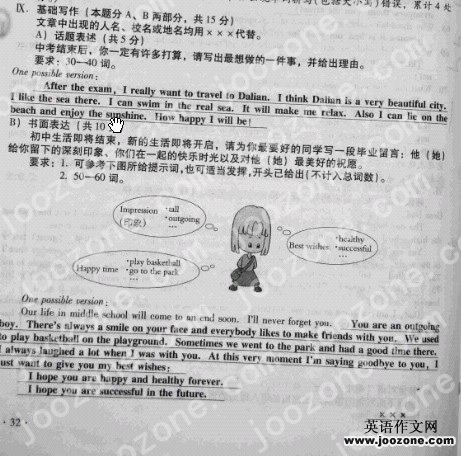 错误，累计4处
IX. 基础写作（本题分 A、B 两部分，共 15 分）
文章中出现的人名、校名或地名均用×××代替。
A）话题表述（共 5 分）
中考结束后，你一定有许多打算，请写出最想做的一件事，并给出理由。
要求：30—40 词。
One possible version:
After the exam, I really want to travel to Dalian. I think Dalian is a very beautiful city.
I like the sea there. I can swim in the real sea. It will make me relax. Also I can lie on the
beach and enjoy the sunshine. How happy I will be!
B）书面表达（共 10
初中生活即将结束，新的生活即将开启，请为你最要好的同学写一段毕业留言：他（她）
给你留下的深刻印象、你们在一起的快乐时光以及对他（她）最美好的祝愿。
要求：1. 可参考下图所给提示词，也可适当发挥，开头已给出(不计入总词数)。
2. 50—60 词。
Impression
(印象)
·tall
·outgoing
...
Best wishes
·healthy
·successful
...
Happy time
·play basketball
·go to the park
...
One possible version:
Our life in middle school will come to an end soon. I'll never forget you. You are an outgoing
boy. There's always a smile on your face and everybody likes to make friends with you. We used
to play basketball on the playground. Sometimes we went to the park and had a good time there.
I always laughed a lot when I was with you. At this very moment I'm saying goodbye to you, I
just want to give you my best wishes:
I hope you are happy and healthy forever.
I hope you are successful in the future.
×××
· 32 ·
英语作文网
www.joozone.com